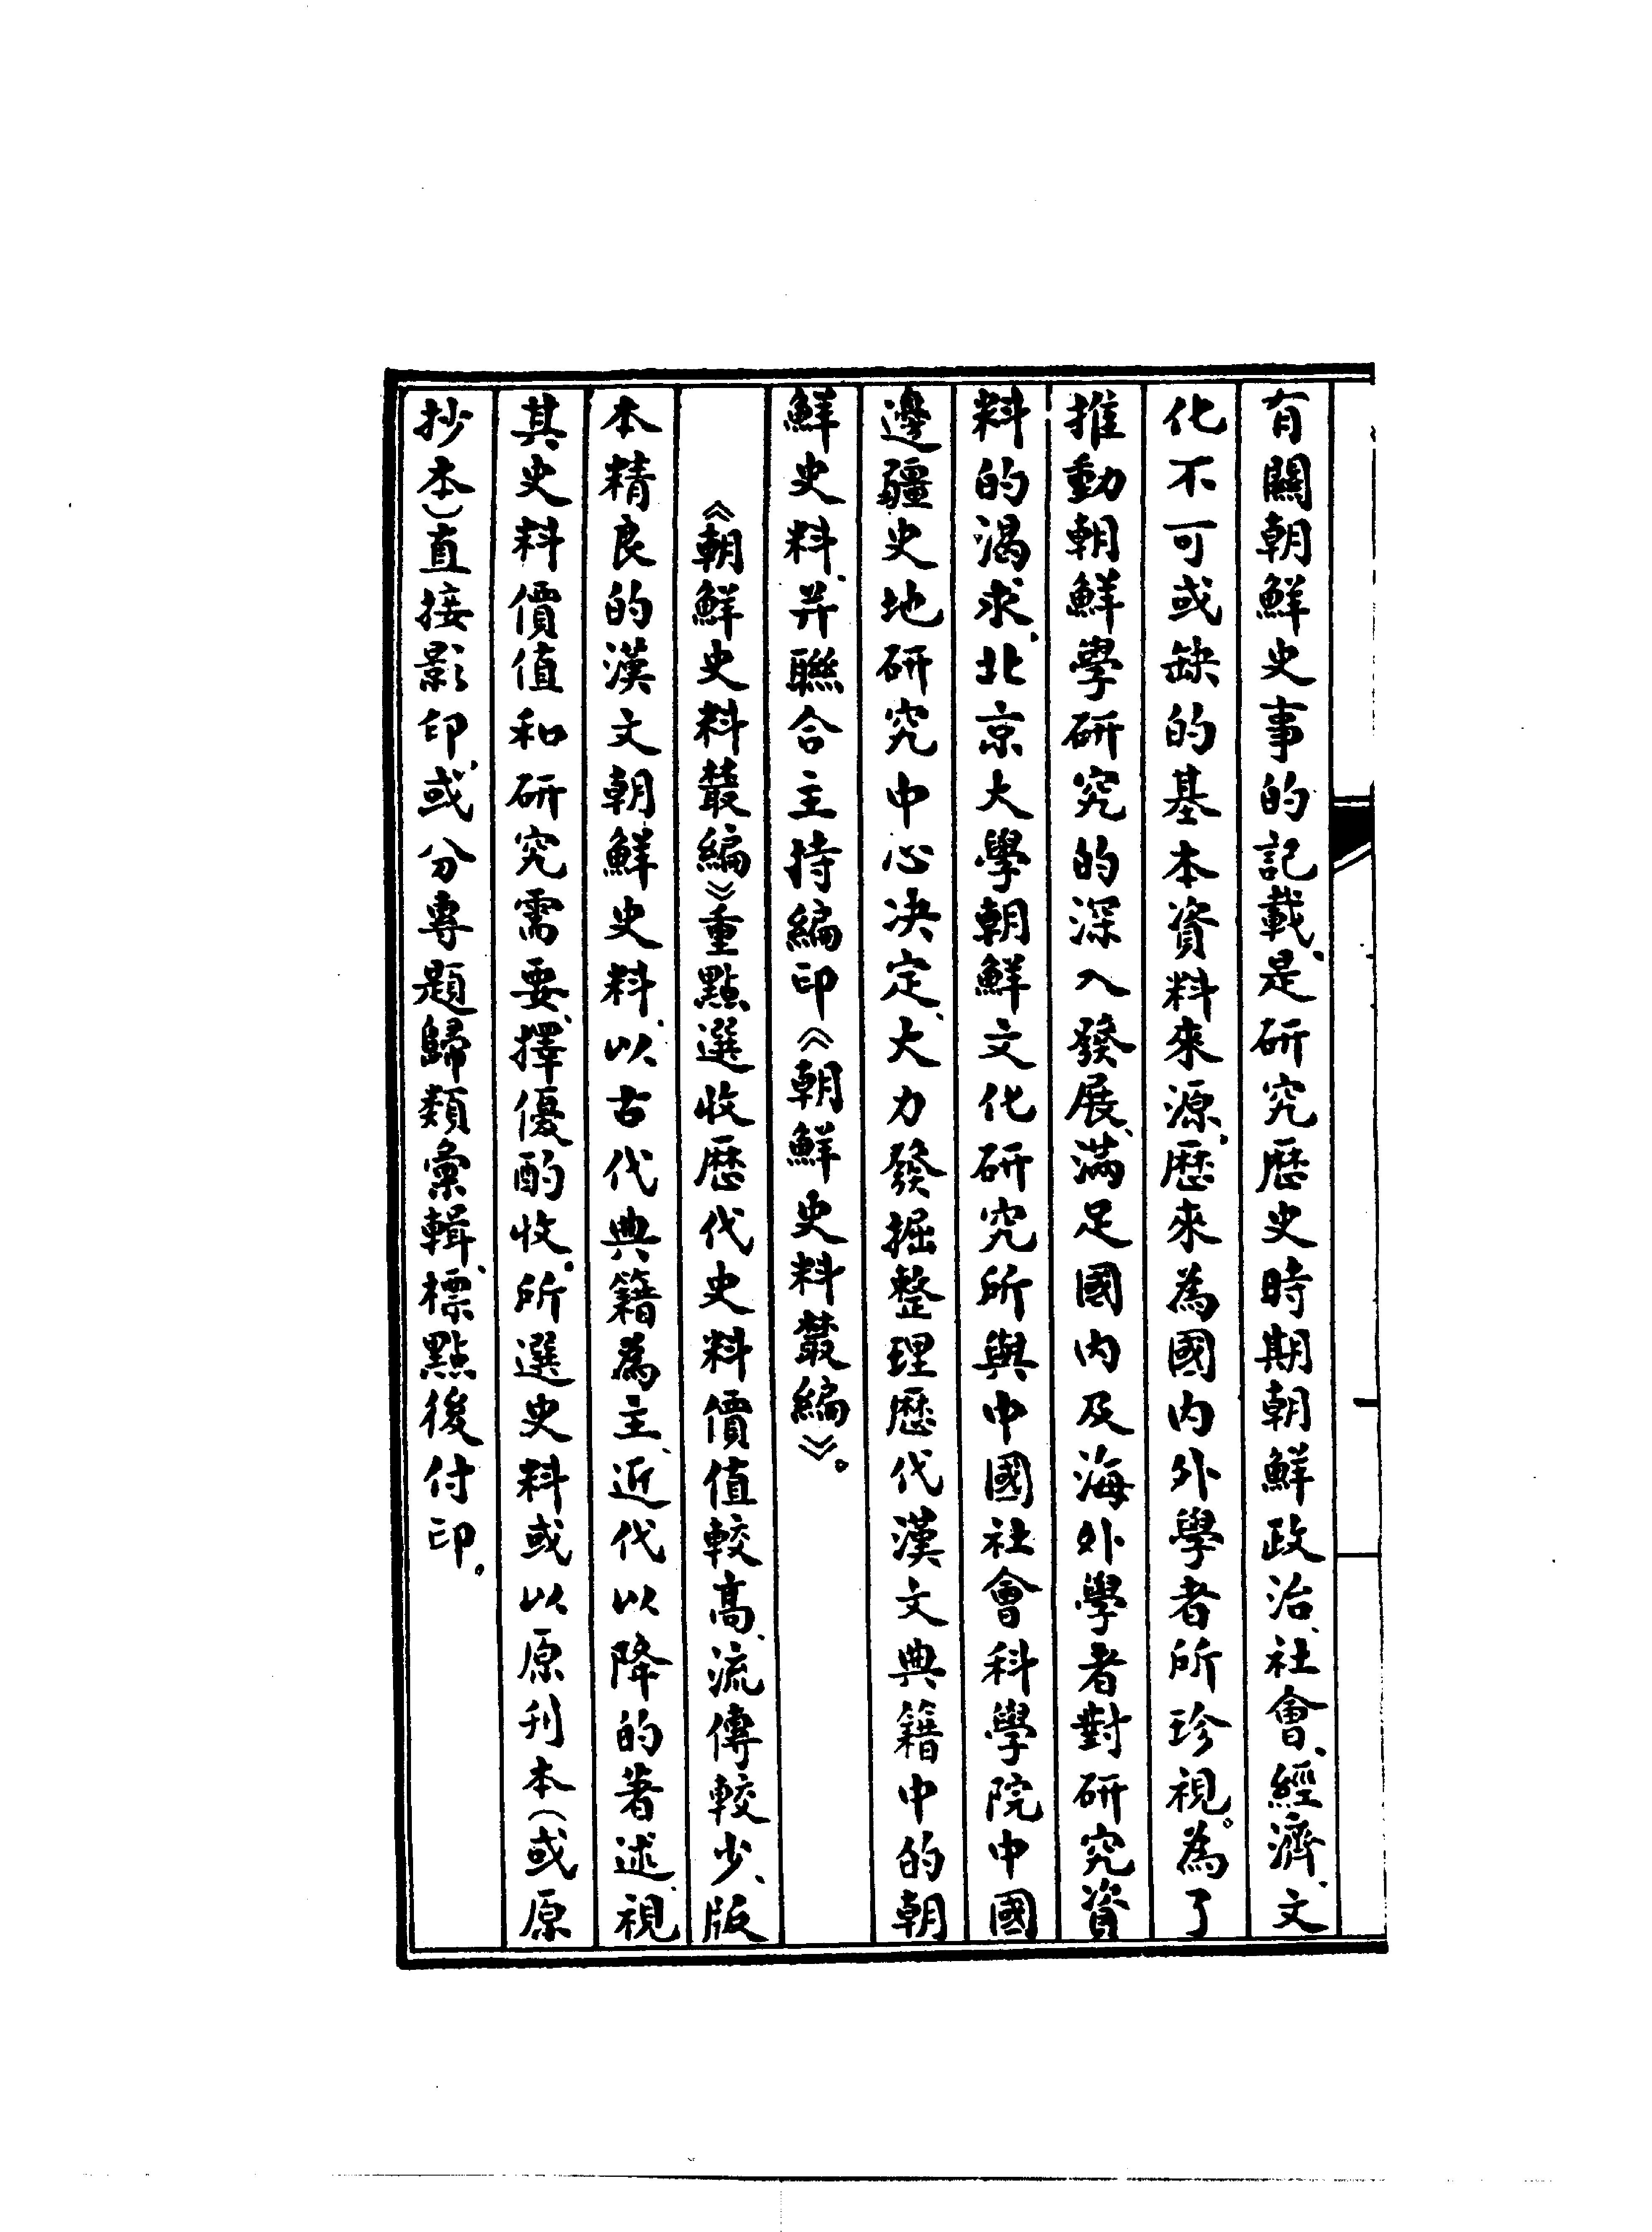 有關朝鮮史事的記載、是研究歷史時期朝鮮政治、社會、經濟、文
化不可或缺的基本資料來源、歷來為國內外學者所珍視。為了
推動朝鮮學研究的深入發展、滿足國內及海外學者對研究資
料的渴求、北京大學朝鮮文化研究所與中國社會科學院中國
邊疆史地研究中心決定、大力發掘整理歷代漢文典籍中的朝
鮮史料、并聯合主持編印《朝鮮史料叢編》。
《朝鮮史料叢編》重點選收歷代史料價值較高、流傳較少、版
本精良的漢文朝鮮史料、以古代典籍為主、近代以降的著述、視
其史料價值和研究需要、擇優酌收。所選史料或以原刊本（或原
抄本）直接影印、或分專題歸類彙輯、標點後付印。